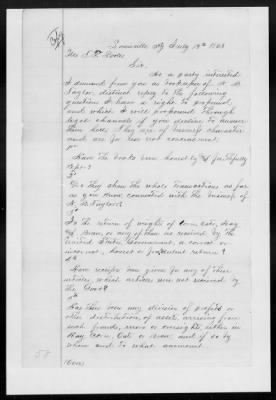 Copy
Louisville Ky July 19th 1865
Sir.
As a party interested
I demand from you as bookkeeper of N. B.
Taylor, distinct reply to the following
question I have a right to propound,
and which I will propound through
legal channels if you decline to answer
them here. They are of business character
and are for use not concernment.
1st
Have the books been honestly & faithfully
kept?
2d
Do they show the whole transactions as far
as you know connected with the business of
N. B. Taylor?
3d
Is the return of weights of Corn, Oats, Hay
& Bran, or any of them as received by the
United States Government, a correct or
incorrect, honest or fraudulent return?
4th
Have receipts been given for any of these
articles which articles are not received by
the Govt?
5th
Has there been any division of profits or
other distribution of assets arising from
such frauds, errors or oversights, either in
Hay, Corn, Oats or Bran, and if so by
whom and to what amount.
(Over)